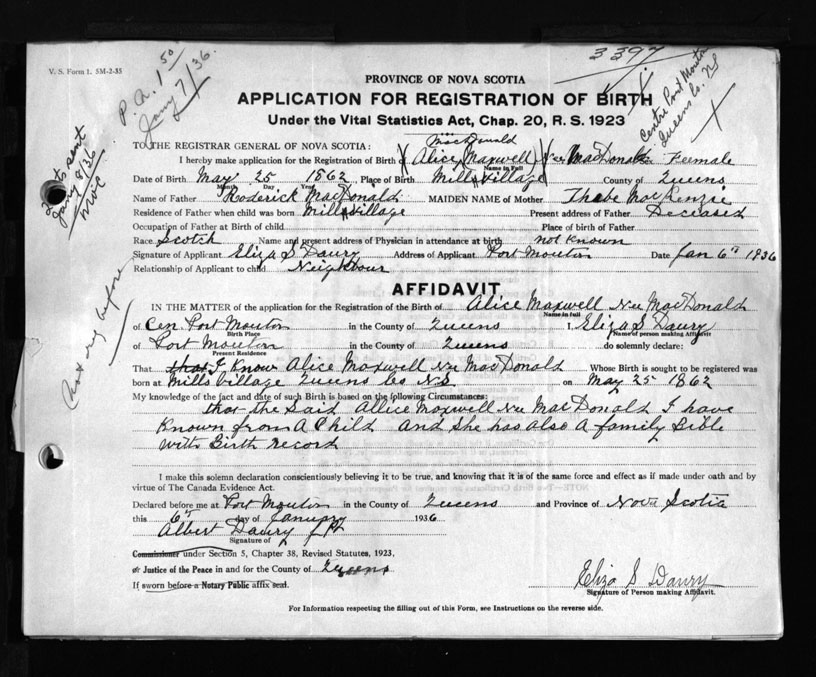 V. S. Form 1. 5M-2-35
P. A. 1 50
Jany 7/36.
3397
Centre Port Mouton
Queens Co. NS
sent
Jany 8/36
Not reg before
PROVINCE OF NOVA SCOTIA
APPLICATION FOR REGISTRATION OF BIRTH
Under the Vital Statistics Act, Chap. 20, R. S. 1923
TO THE REGISTRAR GENERAL OF NOVA SCOTIA:
MacDonald
I hereby make application for the Registration of Birth of (Alice Maxwell) Nee MacDonald Female
Name in Full
Date of Birth May 25 1862 Place of Birth Mills Village County of Queens
Month Day Year
Name of Father Roderick MacDonald MAIDEN NAME of Mother Thebe MacKenzie
Residence of Father when child was born Mills Village Present address of Father Deceased
Occupation of Father at Birth of child Place of birth of Father
Race Scotch Name and present address of Physician in attendance at birth not known
Signature of Applicant Eliza S Daury Address of Applicant Port Mouton Date Jan 6th 1936
Relationship of Applicant to child Neighbour
AFFIDAVIT
IN THE MATTER of the application for the Registration of the Birth of Alice Maxwell Nee MacDonald
Name in full
of Cen Port Mouton in the County of Queens I, Eliza S Daury
Birth Place Name of person making Affidavit
of Port Mouton in the County of Queens do solemnly declare:
Present Residence
That that I Know Alice Maxwell Nee MacDonald Whose Birth is sought to be registered was
born at Mills Village Queens Co N.S on May 25 1862
My knowledge of the fact and date of such Birth is based on the following Circumstances:
that She Said Allice Maxwell Nee MacDonald I have
Known from A Child And She has also A family Bible
with Birth record
I make this solemn declaration conscientiously believing it to be true, and knowing that it is of the same force and effect as if made under oath and by
virtue of The Canada Evidence Act.
Declared before me at Port Mouton in the County of Queens and Province of Nova Scotia
this 6th day of January 1936
Albert Daury J P
Signature of
Commissioner under Section 5, Chapter 38, Revised Statutes, 1923,
or Justice of the Peace in and for the County of Queens
If sworn before a Notary Public affix seal.
Eliza S Daury
Signature of Person making Affidavit.
For Information respecting the filling out of this Form, see Instructions on the reverse side.